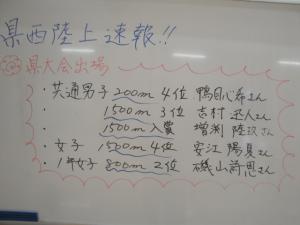 県西陸上速報!!
県大会出場
・共通男子 200m 4位 鴨目心希さん
・ 1500m 3位 吉村 丞人さん
・ 1500m入賞 増渕 陸玖さん
・女子 1500m 4位 安江 陽夏さん
・1年女子 800m 2位 磯山 詩恩さん